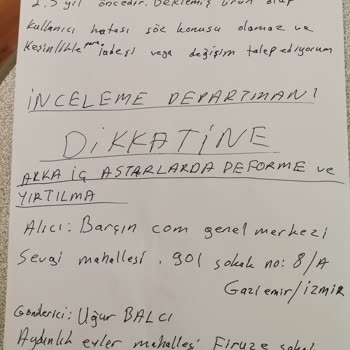 2.5 yıl öncedir. Beklemiş ürün olup
kullanıcı hatası söz konusu olamaz ve
Kesinlikle para iadesi veya değişim talep ediyorum
İNCELEME DEPARTMANI
DİKKATİNE
ARKA İÇ ASTARLARDA DEFORME ve
YIRTILMA
Alıcı: Barçın com genel merkezi
Sevgi mahallesi. 901 sokak no: 8/A
Gaziemir/İZMİR
Gönderici: Uğur BALCI
Aydınlık evler mahallesi Firuze sokak